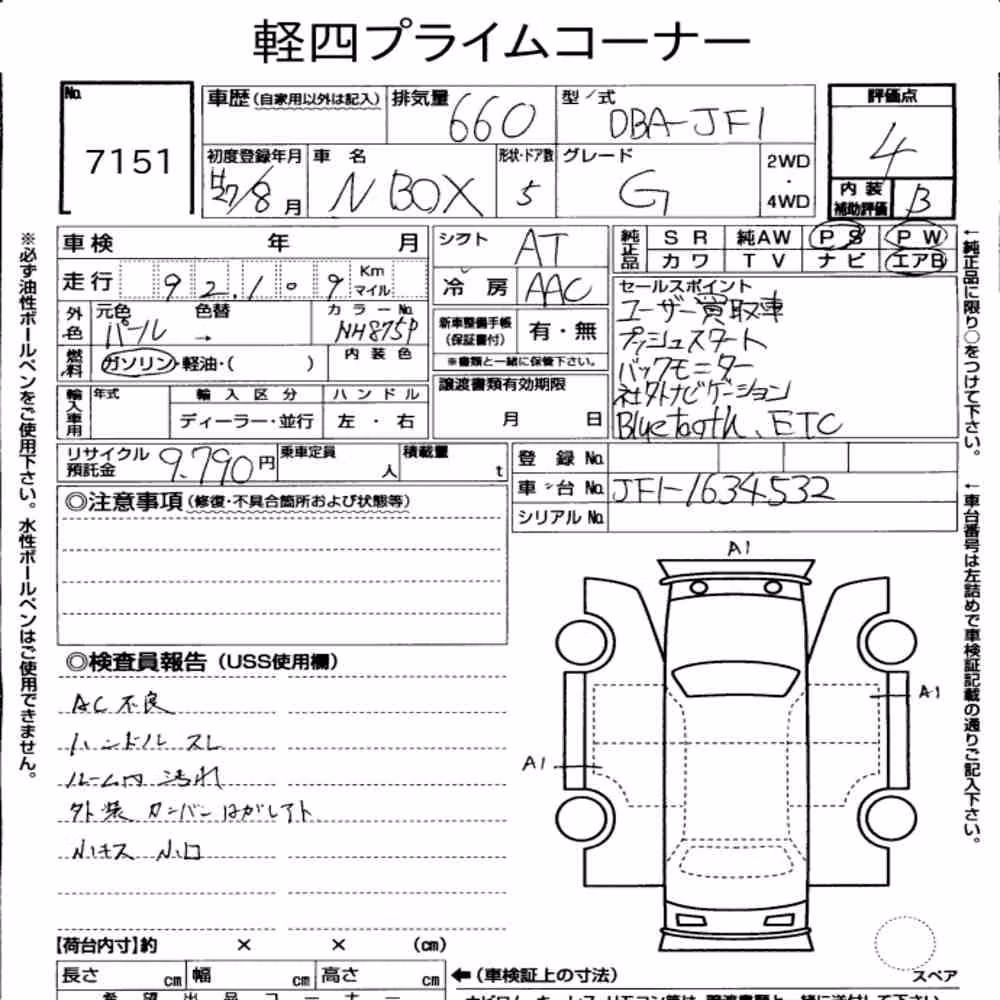 軽四プライムコーナー
No.
7151
車歴(自家用以外は記入)
排気量
660
型式
DBA-JF1
評価点
4
初度登録年月
H27/8月
車名
N BOX
形状・ドア数
5
グレード
G
2WD
・
4WD
内装
補助評価
B
車検 年 月
シフト
AT
純正品
SR 純AW PS PW
カワ TV ナビ エアB
走行
92,109
Km
マイル
冷房
AAC
セールスポイント
ユーザー買取車
プッシュスタート
バックモニター
社外ナビゲーション
Bluetooth、ETC
外色
元色 色替
パール →
カラーNo.
NH875P
新車整備手帳
(保証書付)
有・無
※書類と一緒に保管下さい。
燃料
ガソリン・軽油・( )
内装色
譲渡書類有効期限
月 日
輸入車用
年式
輸入区分
ディーラー・並行
ハンドル
左・右
リサイクル
預託金
9.790円
乗車定員
人
積載量
t
登録No.
車台No.
JF1-1634532
シリアルNo.
◎注意事項(修復・不具合箇所および状態等)
◎検査員報告(USS使用欄)
AC不良
ハンドルスレ
ルーム内汚れ
外装カンバンはがしアト
小キズ 小凹
A1
A1
A1
【荷台内寸】約 × × (cm)
長さ cm 幅 cm 高さ cm
←(車検証上の寸法)
スペア
希望出品コーナー
※必ず油性ボールペンをご使用下さい。水性ボールペンはご使用できません。
←純正品に限り○をつけて下さい。
←車台番号は左詰めで車検証記載の通りご記入下さい。